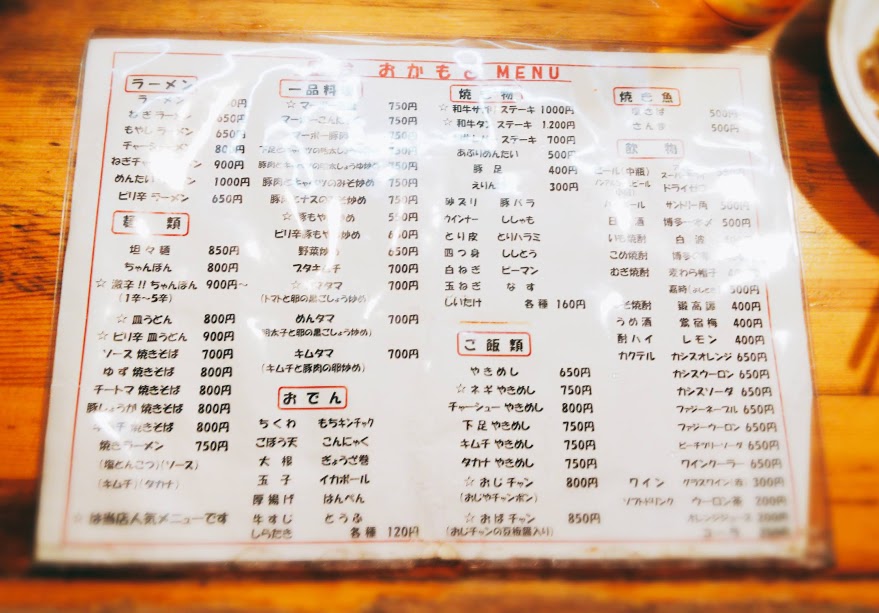 おかもと MENU
ラーメン
ラーメン
ねぎ ラーメン 650円
もやし ラーメン 650円
チャーシューメン 800円
ねぎチャーシューメン 900円
めんたい ラーメン 1000円
ピリ辛 ラーメン 650円
麺 類
坦々麺 850円
ちゃんぽん 800円
☆ 激辛!! ちゃんぽん 900円〜
(1辛〜5辛)
☆ 皿うどん 800円
☆ ピリ辛 皿うどん 900円
ソース 焼きそば 700円
ゆず 焼きそば 800円
チートマ 焼きそば 800円
豚しょうが 焼きそば 800円
キムチ 焼きそば 800円
焼きラーメン 750円
(塩とんこつ)(ソース)
(キムチ)(タカナ)
☆ は当店人気メニューです
一品料理
750円
マーボーこんにゃく 750円
マーボー豚足 750円
750円
750円
豚肉とキャベツのみそ炒め 750円
豚肉とナスのみそ炒め 750円
☆ 豚もやし炒め 550円
ピリ辛豚もやし炒め 600円
野菜炒め 650円
ブタキムチ 700円
☆ トマタマ 700円
(トマトと卵の黒こしょう炒め)
めんタマ 700円
(明太子と卵の黒こしょう炒め)
キムタマ 700円
(キムチと豚肉の卵炒め)
おでん
ちくわ もちキンチャク
ごぼう天 こんにゃく
大根 ぎょうざ巻
玉子 イカボール
厚揚げ はんぺん
牛すじ とうふ
しらたき 各種 120円
焼き物
☆ 和牛サガリ ステーキ 1000円
☆ 和牛タン ステーキ 1200円
ステーキ 700円
あぶりめんたい 500円
豚足 400円
300円
砂ズリ 豚バラ
ウインナー ししゃも
とり皮 とりハラミ
四つ身 ししとう
白ねぎ ピーマン
玉ねぎ なす
しいたけ 各種 160円
ご飯類
やきめし 650円
☆ ネギ やきめし 750円
チャーシュー やきめし 800円
下足 やきめし 750円
キムチ やきめし 750円
タカナ やきめし 750円
☆ おじチャン 800円
(おじやチャンポン)
☆ おばチャン 850円
(おじチャンの豆板醤入り)
焼き魚
500円
さんま 500円
飲物
ビール(中瓶)
ドライゼロ
サントリー角 500円
日本酒 博多一本〆 500円
いも焼酎 白波
こめ焼酎
むぎ焼酎 麦わら帽子
500円
そば焼酎 400円
うめ酒 鶯宿梅 400円
酎ハイ レモン 400円
カクテル カシスオレンジ 650円
カシスウーロン 650円
カシスソーダ 650円
ファジーネーブル 650円
ファジーウーロン 650円
ピーチツリーソーダ 650円
ワインクーラー 650円
ワイン グラスワイン(赤) 300円
ソフトドリンク ウーロン茶 200円
オレンジジュース 200円
コーラ